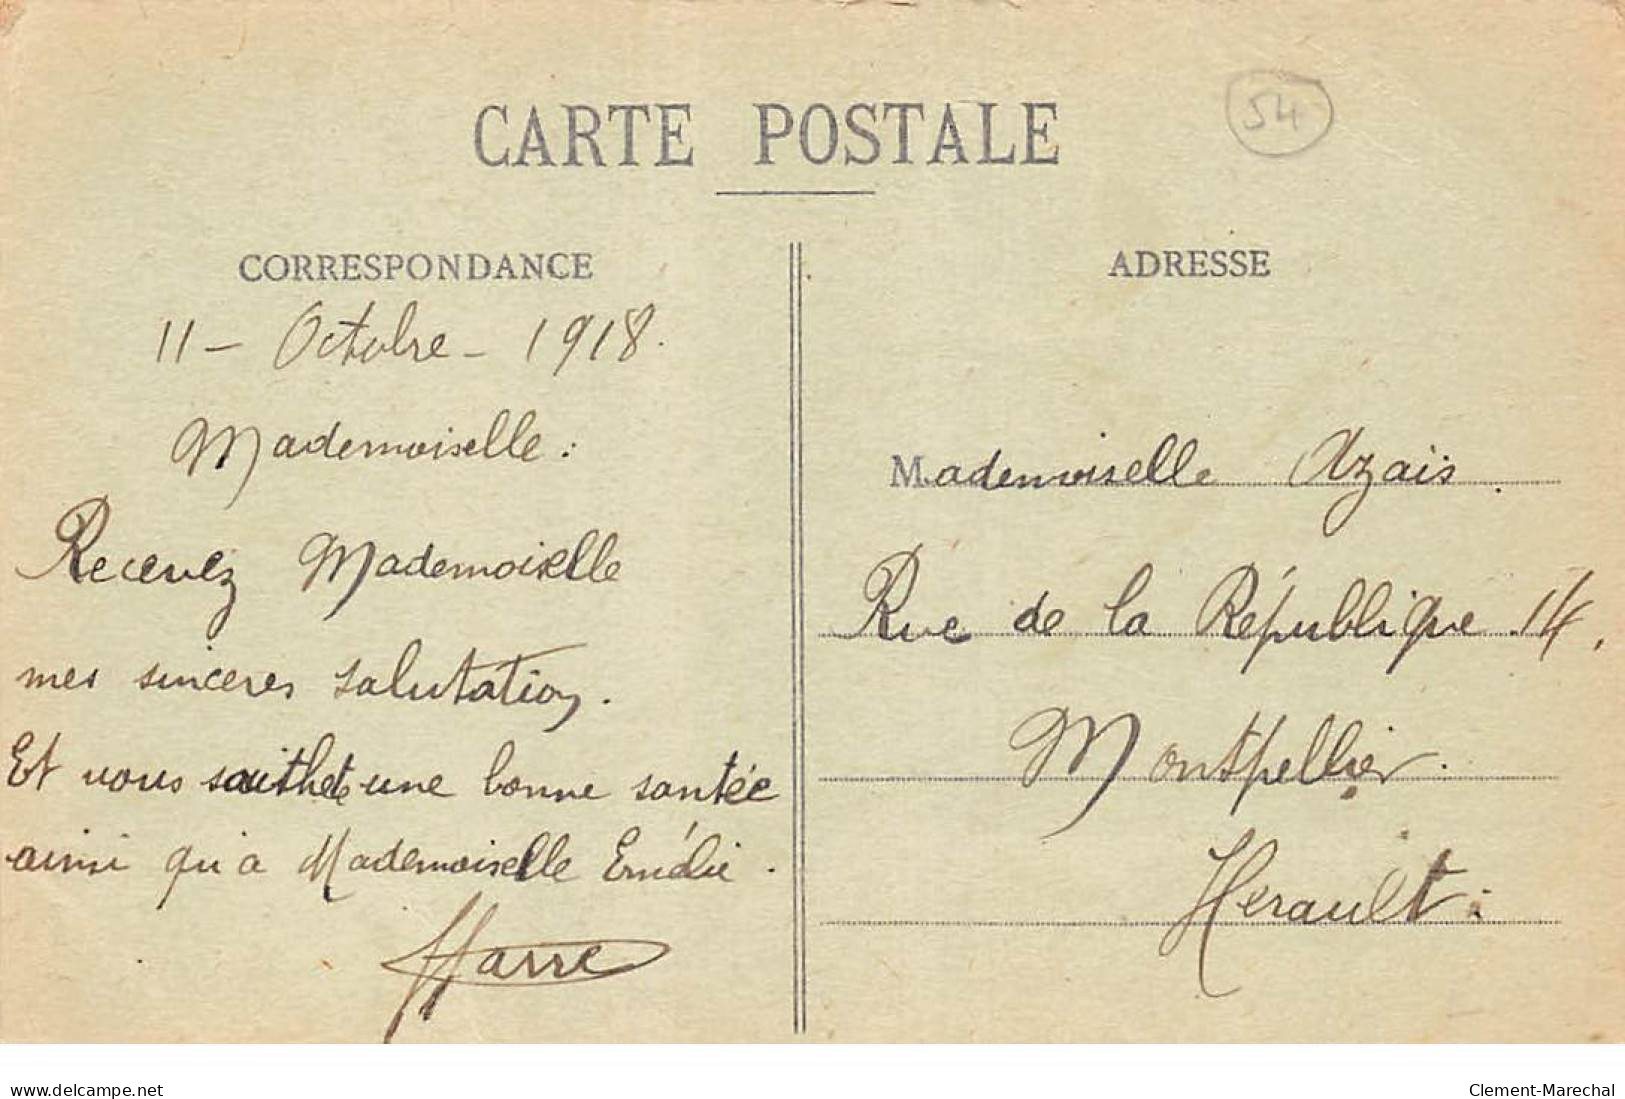 CARTE POSTALE
54
CORRESPONDANCE
11 - Octobre - 1918.
Mademoiselle :
Recevez Mademoiselle
mes sinceres salutation.
Et vous une bonne santée
ainsi qu'a Mademoiselle Emélie.
ADRESSE
Mademoiselle Azais.
Rue de la République. 14.
Montpellier.
Herault.
www.delcampe.net
Clement-Marechal